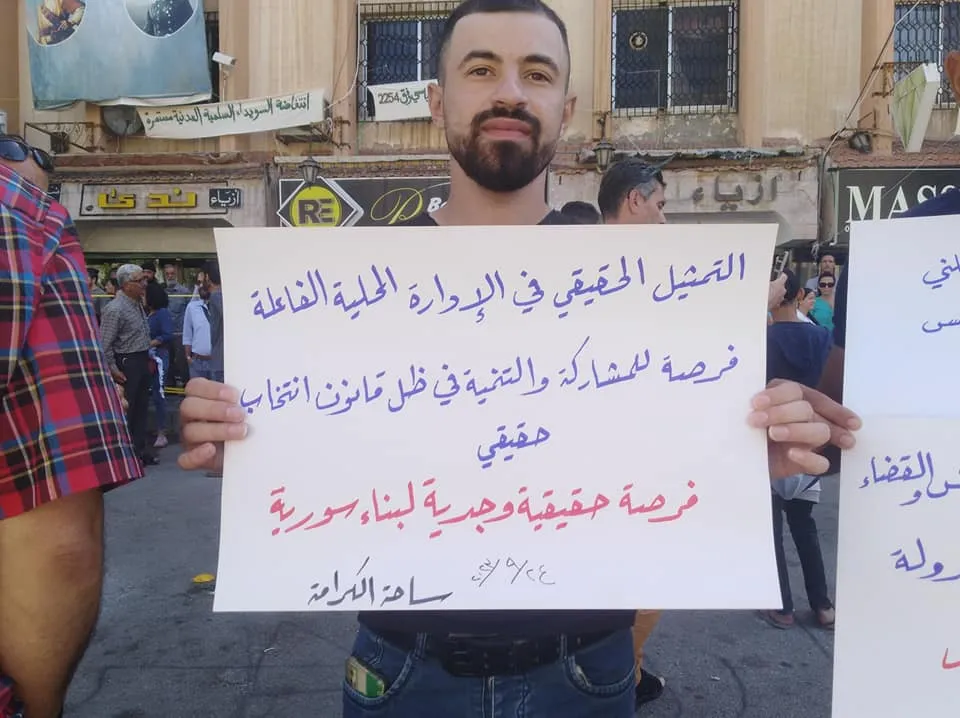 انتفاضة السويداء السلمية المدنية مستمرة
2254
ندى
ازياء
RE
B
ازياء
MASS
التمثيل الحقيقي في الإدارة المحلية الفاعلة
فرصة للمشاركة والتنمية في ظل قانون انتخاب
حقيقي
فرصة حقيقية وجدية لبناء سورية
ساحة الكرامة
القضاء